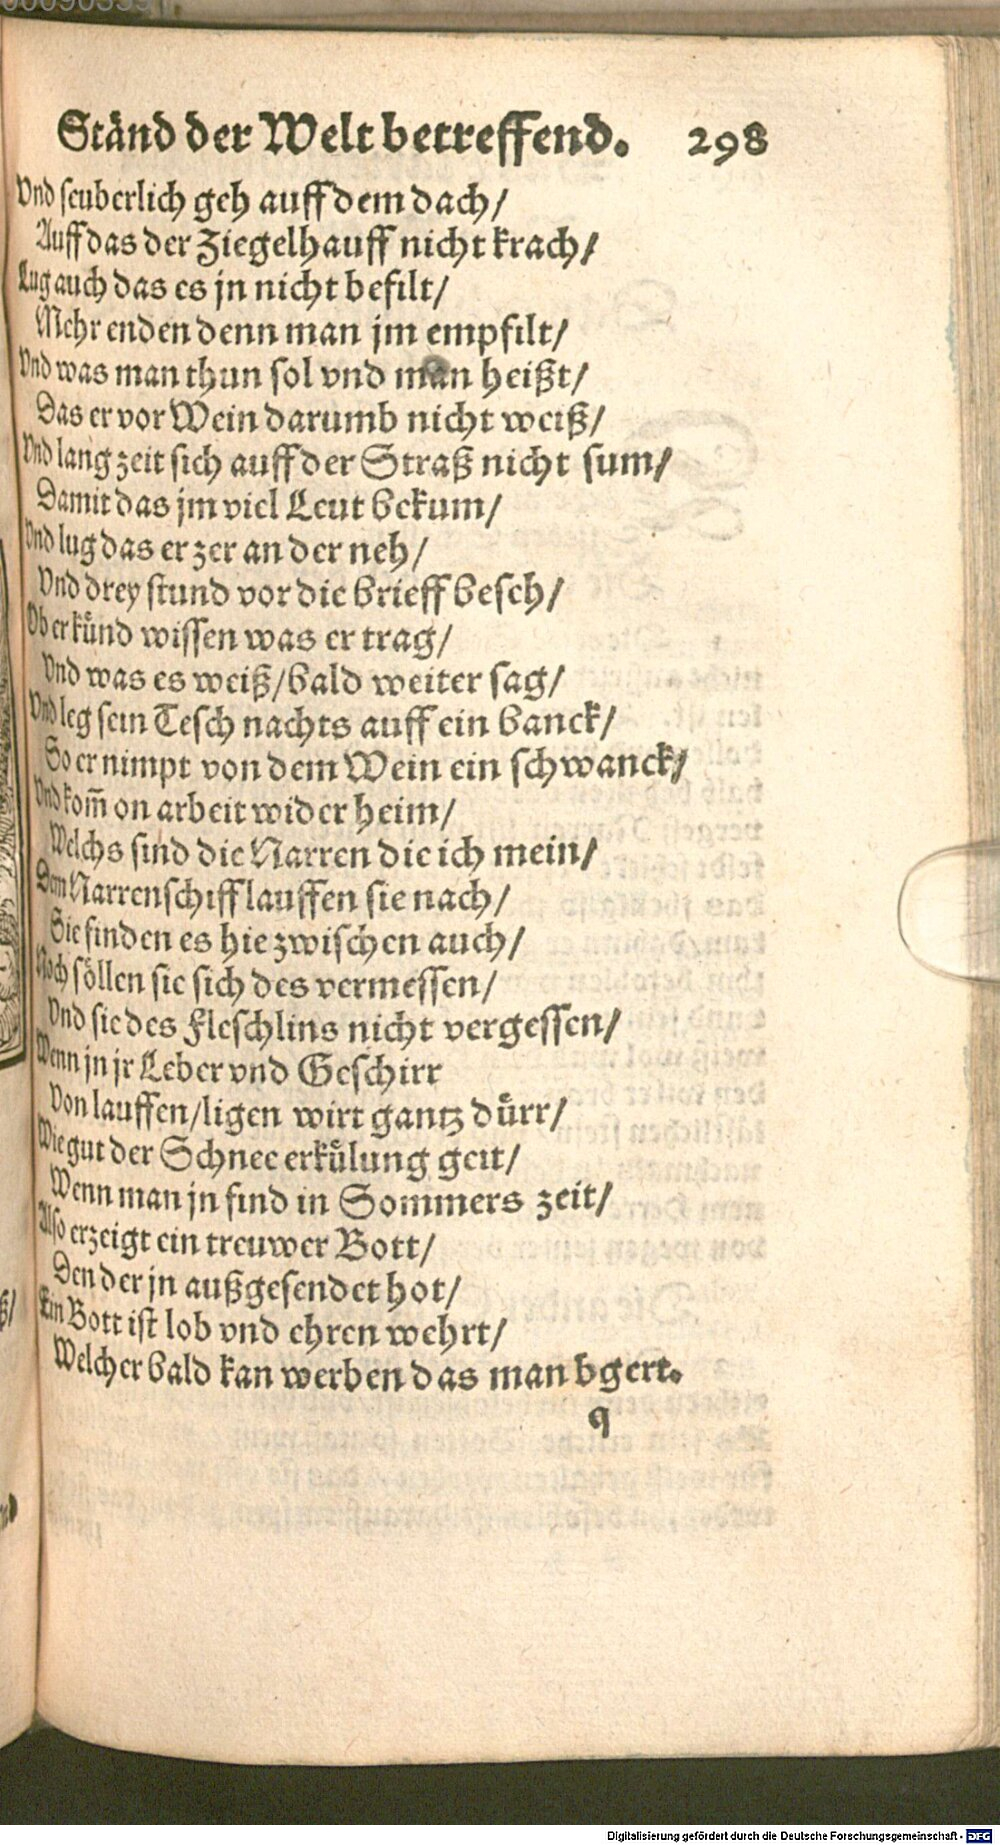 Ständ der Welt betreffend. 298
Vnd seuberlich geh auff dem dach/
Auff das der Ziegelhauff nicht krach/
Lug auch das es jn nicht befilt/
Mehr enden denn man jm empfilt/
Vnd was man thun sol vnd man heißt/
Das er vor Wein darumb nicht weiß/
Vnd lang zeit sich auff der Straß nicht sum/
Damit das jm viel Leut bekum/
Vnd lug das er zer an der neh/
Vnd drey stund vor die brieff besch/
Ob er künd wissen was er trag/
Vnd was es weiß/bald weiter sag/
Vnd leg sein Tesch nachts auff ein banck/
So er nimpt von dem Wein ein schwanck/
Vnd kom̃ on arbeit wider heim/
Welchs sind die Narren die ich mein/
Dem Narrenschiff lauffen sie nach/
Sie finden es hie zwischen auch/
Noch söllen sie sich des vermessen/
Vnd sie des Fleschlins nicht vergessen/
Wenn jn jr Leber vnd Geschirr
Von lauffen/ligen wirt gantz dürr/
Wie gut der Schnee erkülung geit/
Wenn man jn find in Sommers zeit/
Also erzeigt ein treuwer Bott/
Den der jn außgesendet hot/
Ein Bott ist lob vnd ehren wehrt/
Welcher bald kan werben das man bgert.
q
Digitalisierung gefördert durch die Deutsche Forschungsgemeinschaft - DFG